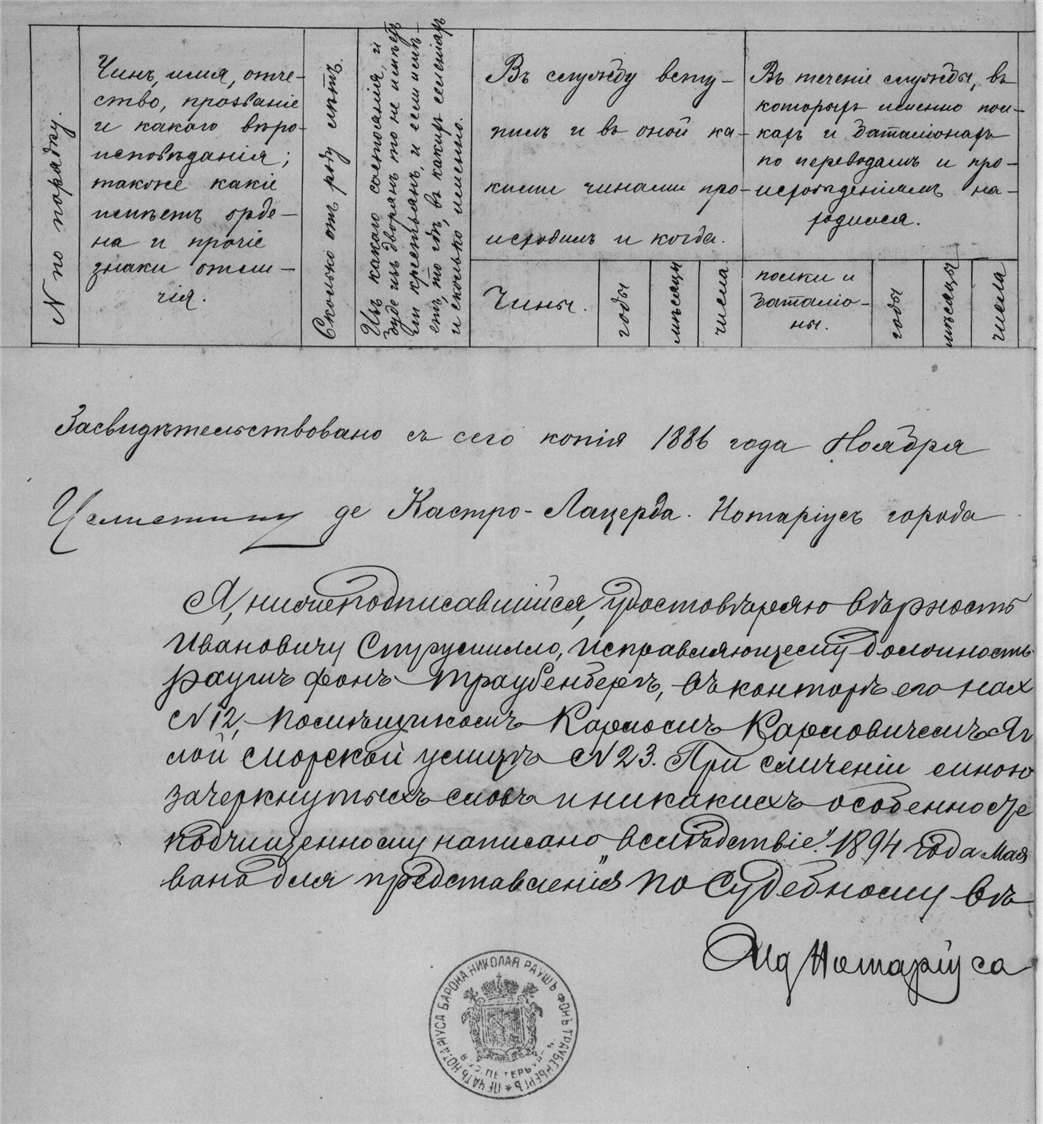 N по порядку.
Чинъ, имя, отче-
ство, прозваніе
и какого вѣро-
исповѣданія;
также какіе
имѣетъ орде-
на и прочіе
знаки отли-
чія.
Сколько отъ роду лѣтъ.
Изъ какого состоянія, и
буде изъ дворянъ, то не имѣетъ
ли крестьянъ, и если имѣ-
етъ, то гдѣ, въ какихъ селеніяхъ
и сколько именно.
Въ службу всту-
пилъ и въ оной ка-
кими чинами про-
исходилъ и когда.
Чины.
годы
мѣсяцы
числа.
Въ теченіе службы, въ
которыхъ именно пол-
кахъ и баталіонахъ
по переводамъ и про-
исхожденіямъ на-
ходился.
полки и
баталіо-
ны.
годы
мѣсяцы
числа
Засвидѣтельствовано съ сего копія 1886 года Ноября
де Кастро-Лацерда. Нотаріусъ города
Я, нижеподписавшійся, удостовѣряю вѣрность
Ивановичу Струмилло, исправляющему должность
Раушъ фонъ Траубенбергъ, въ конторѣ его нах
N 12, помѣщикомъ Карломъ Карловичемъ Яг
лой Морской улицѣ N 23. При сличеніи мною
зачеркнутыхъ словъ и никакихъ особенносте
подчищенному написано "вслѣдствіе". 1894 года Мая
вана для представленія "по судебному вѣ
Ид Нотаріуса
ПЕЧАТЬ НОТАРІУСА БАРОНА НИКОЛАЯ РАУШЪ ФОНЪ ТРАУБЕНБЕРГЪ